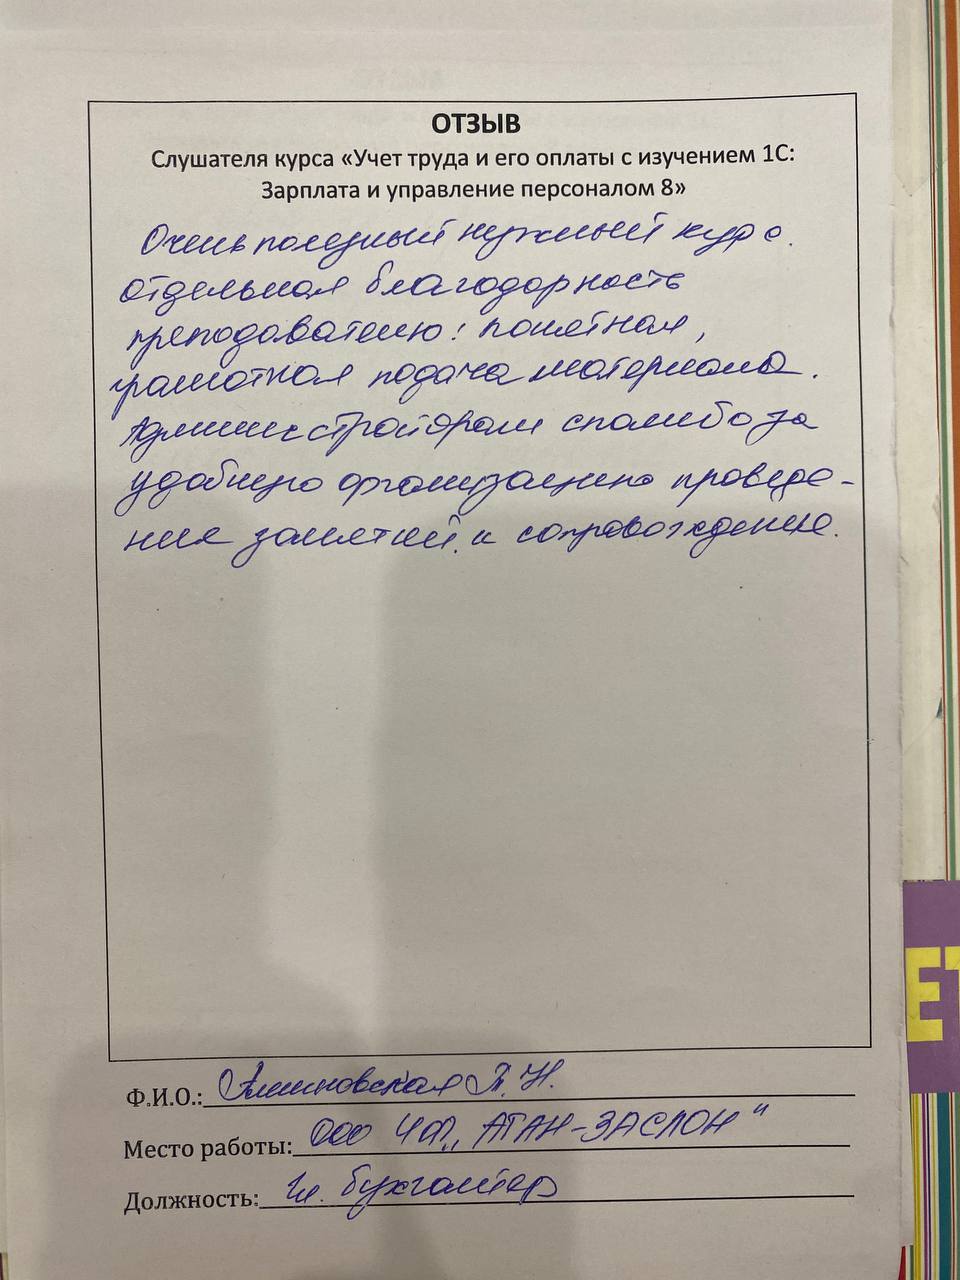 ОТЗЫВ
Слушателя курса «Учет труда и его оплаты с изучением 1С:
Зарплата и управление персоналом 8»
Очень полезный нужный курс.
отдельная благодарность
преподавателю! понятная,
грамотная подача материала.
Администраторам спасибо за
удобную организацию проведе-
ния занятий и сопровождение.
Ф.И.О.:
Место работы: ООО ЧОП „АТАН-ЗАСЛОН"
Должность: Гл. бухгалтер
ET